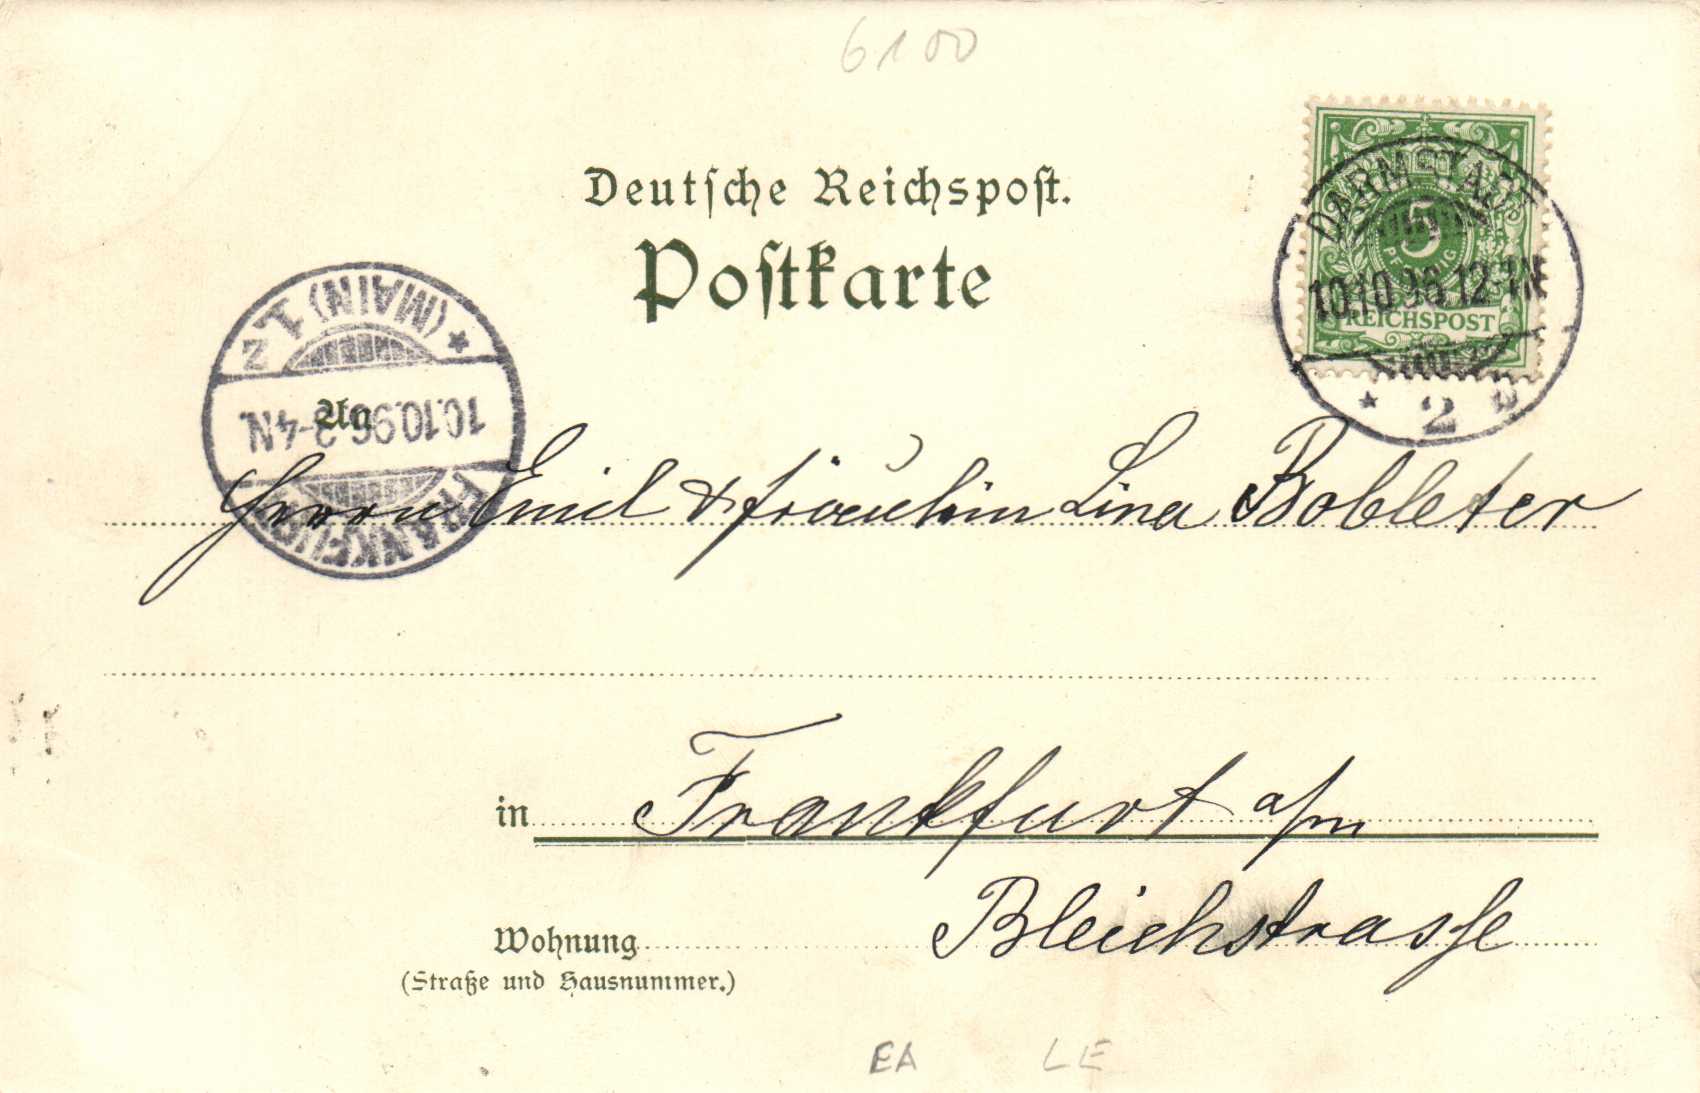 6100
Deutsche Reichspost.
Postkarte
DARMSTADT
5
PFENNIG
10.10.96.12-1N
REICHSPOST
* 2 *
FRANKFURT
10.10.96.3-4N.
*(MAIN) 1. Z
An
Herrn Emil & Fräulein Lina Bobleter
in Frankfurt a/m
Wohnung Bleichstrasse
(Straße und Hausnummer.)
EA LE